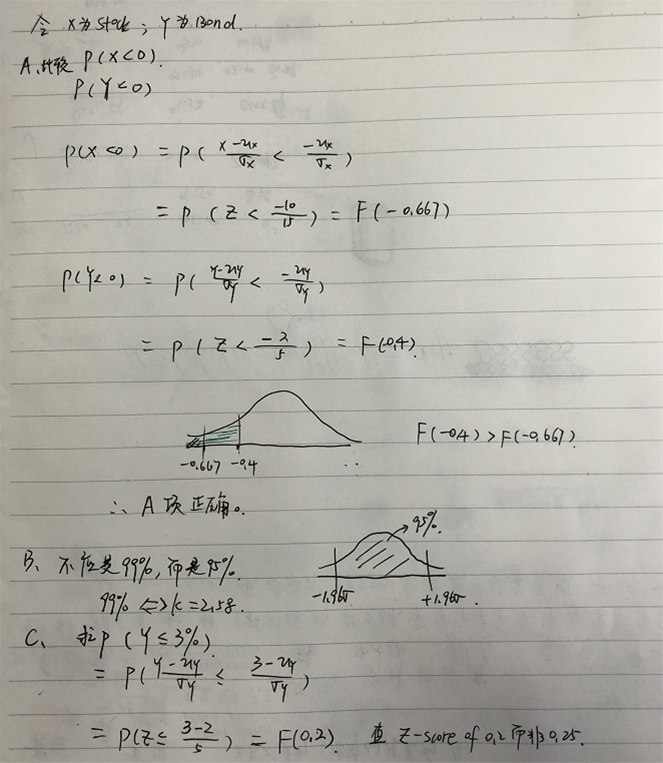 令 X为Stock; Y为Bond.
A、比较 P(X<0).
P(Y<0)
P(X<0) = P( \frac{X-μx}{σx} < \frac{-μx}{σx} )
= P ( Z < \frac{-10}{15} ) = F(-0.667)
P(Y<0) = P( \frac{Y-μy}{σy} < \frac{-μy}{σy} )
= P ( Z < \frac{-2}{5} ) = F(-0.4).
F(-0.4) > F(-0.667).
-0.667 -0.4
∴ A 项正确。
95%.
B、不应是99%, 而是95%.
-1.96σ +1.96σ.
99% <=> K = 2.58.
C、求 P ( Y ≤ 3%).
= P( \frac{Y-μy}{σy} ≤ \frac{3-μy}{σy} )
= P(Z ≤ \frac{3-2}{5} ) = F(0.2). 查 Z-score of 0.2 而非0.25.